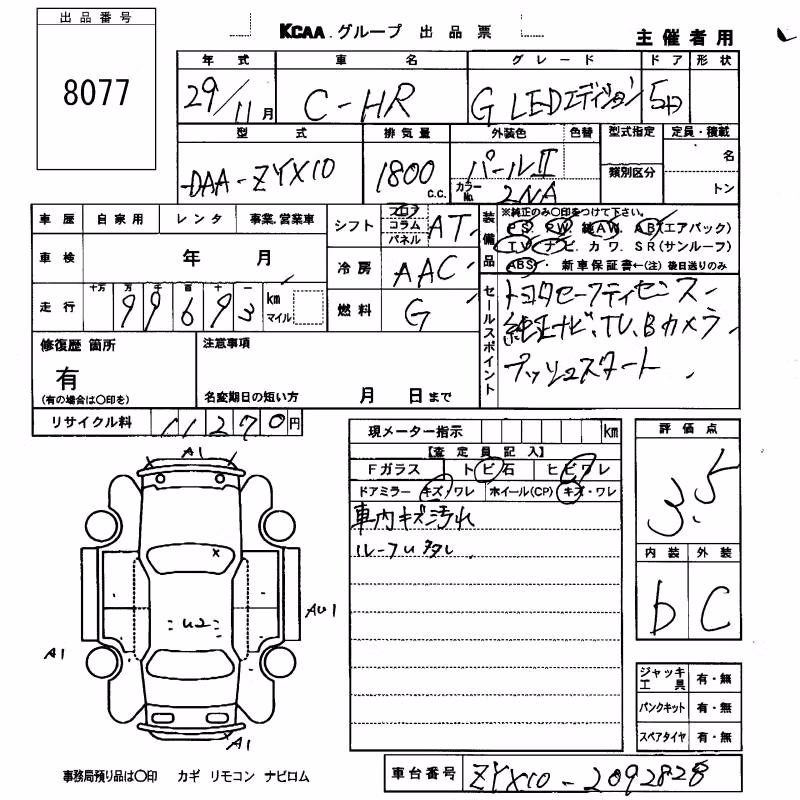 出品番号
8077
KCAA グループ 出品票
主催者用
年式 車名 グレード ドア 形状
29/11月 C-HR G LEDエディション 5D
型式 排気量 外装色 色替 型式指定 定員・積載
DAA-ZYX10 1800 c.c. パールII カラーNo. 2NA 類別区分 名 トン
車歴 自家用 レンタ 事業、営業車
シフト フロア コラム パネル AT
装備品 ※純正のみ〇印をつけて下さい。
PS. PW. 純AW. AB(エアバック)
TV. ナビ. カワ. SR(サンルーフ)
ABS・ 新車保証書←(注)後日送りのみ
車検 年 月
冷房 AAC
走行 十万 万 千 百 十 一
99693 km マイル
燃料 G
セールスポイント
トヨタセーフティセンス
純正ナビ、TV、Bカメラ
プッシュスタート
修復歴 箇所
有
(有の場合は〇印を)
注意事項
名変期日の短い方 月 日まで
リサイクル料 11270円
現メーター指示 km
【査定員記入】
Fガラス トビ石 ヒビワレ
ドアミラー キズ/ワレ ホイール(CP) キズ・ワレ
車内キズ汚れ
評価点
3.5
内装 外装
b C
A1
X
U2
AU1
A1
A1
ジャッキ工具 有・無
パンクキット 有・無
スペアタイヤ 有・無
事務局預り品は〇印 カギ リモコン ナビロム
車台番号 ZYX10-2092828